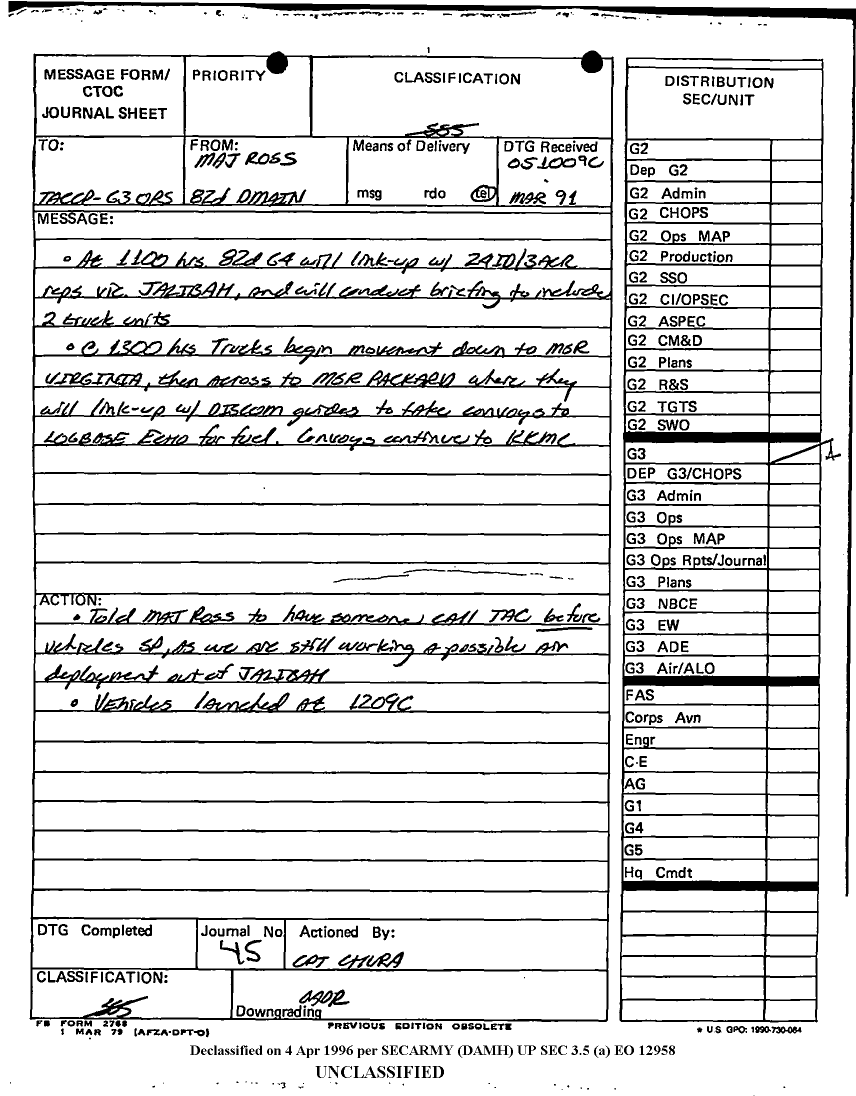 MESSAGE FORM/
CTOC
JOURNAL SHEET
PRIORITY
CLASSIFICATION
TO:
TACCP-G3 OPS
FROM:
MAJ ROSS
82d DMAIN
Means of Delivery
msg rdo tel
DTG Received
051009C
MAR 91
MESSAGE:
• At 1100 hrs. 82d G4 will link-up w/ 24ID/3ACR
reps vic. JALIBAH, and will conduct briefing to include
2 truck units
• @ 1300 hrs Trucks begin movement down to MSR
VIRGINIA, then across to MSR PACKARD where they
will link-up w/ DISCOM guides to take convoys to
LOGBASE ECHO for fuel. Convoys continue to KKMC
ACTION:
• Told MAJ Ross to have someone CALL TAC before
vehicles SP, as we are still working a possible air
deployment out of JALIBAH
• Vehicles launched at 1209C
DTG Completed
Journal No
45
Actioned By:
CPT CHURA
CLASSIFICATION:
OADR
Downgrading
FB FORM 2768
1 MAR 79 (AFZA-DPT-O)
PREVIOUS EDITION OBSOLETE
DISTRIBUTION
SEC/UNIT
G2
Dep G2
G2 Admin
G2 CHOPS
G2 Ops MAP
G2 Production
G2 SSO
G2 CI/OPSEC
G2 ASPEC
G2 CM&D
G2 Plans
G2 R&S
G2 TGTS
G2 SWO
G3
DEP G3/CHOPS
G3 Admin
G3 Ops
G3 Ops MAP
G3 Ops Rpts/Journal
G3 Plans
G3 NBCE
G3 EW
G3 ADE
G3 Air/ALO
FAS
Corps Avn
Engr
C-E
AG
G1
G4
G5
Hq Cmdt
* U.S. GPO: 1990-730-084
Declassified on 4 Apr 1996 per SECARMY (DAMH) UP SEC 3.5 (a) EO 12958
UNCLASSIFIED